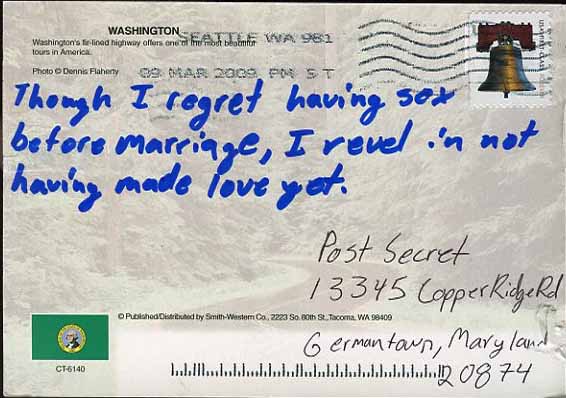 WASHINGTON
Washington's fir-lined highway offers one of the most beautiful
tours in America.
Photo © Dennis Flaherty
SEATTLE WA 981
09 MAR 2009 PM 5 T
Though I regret having sex
before marriage, I revel in not
having made love yet.
Post Secret
13345 Copper Ridge Rd
Germantown, Maryland
20874
© Published/Distributed by Smith-Western Co., 2223 So. 80th St., Tacoma, WA 98409
CT-6140